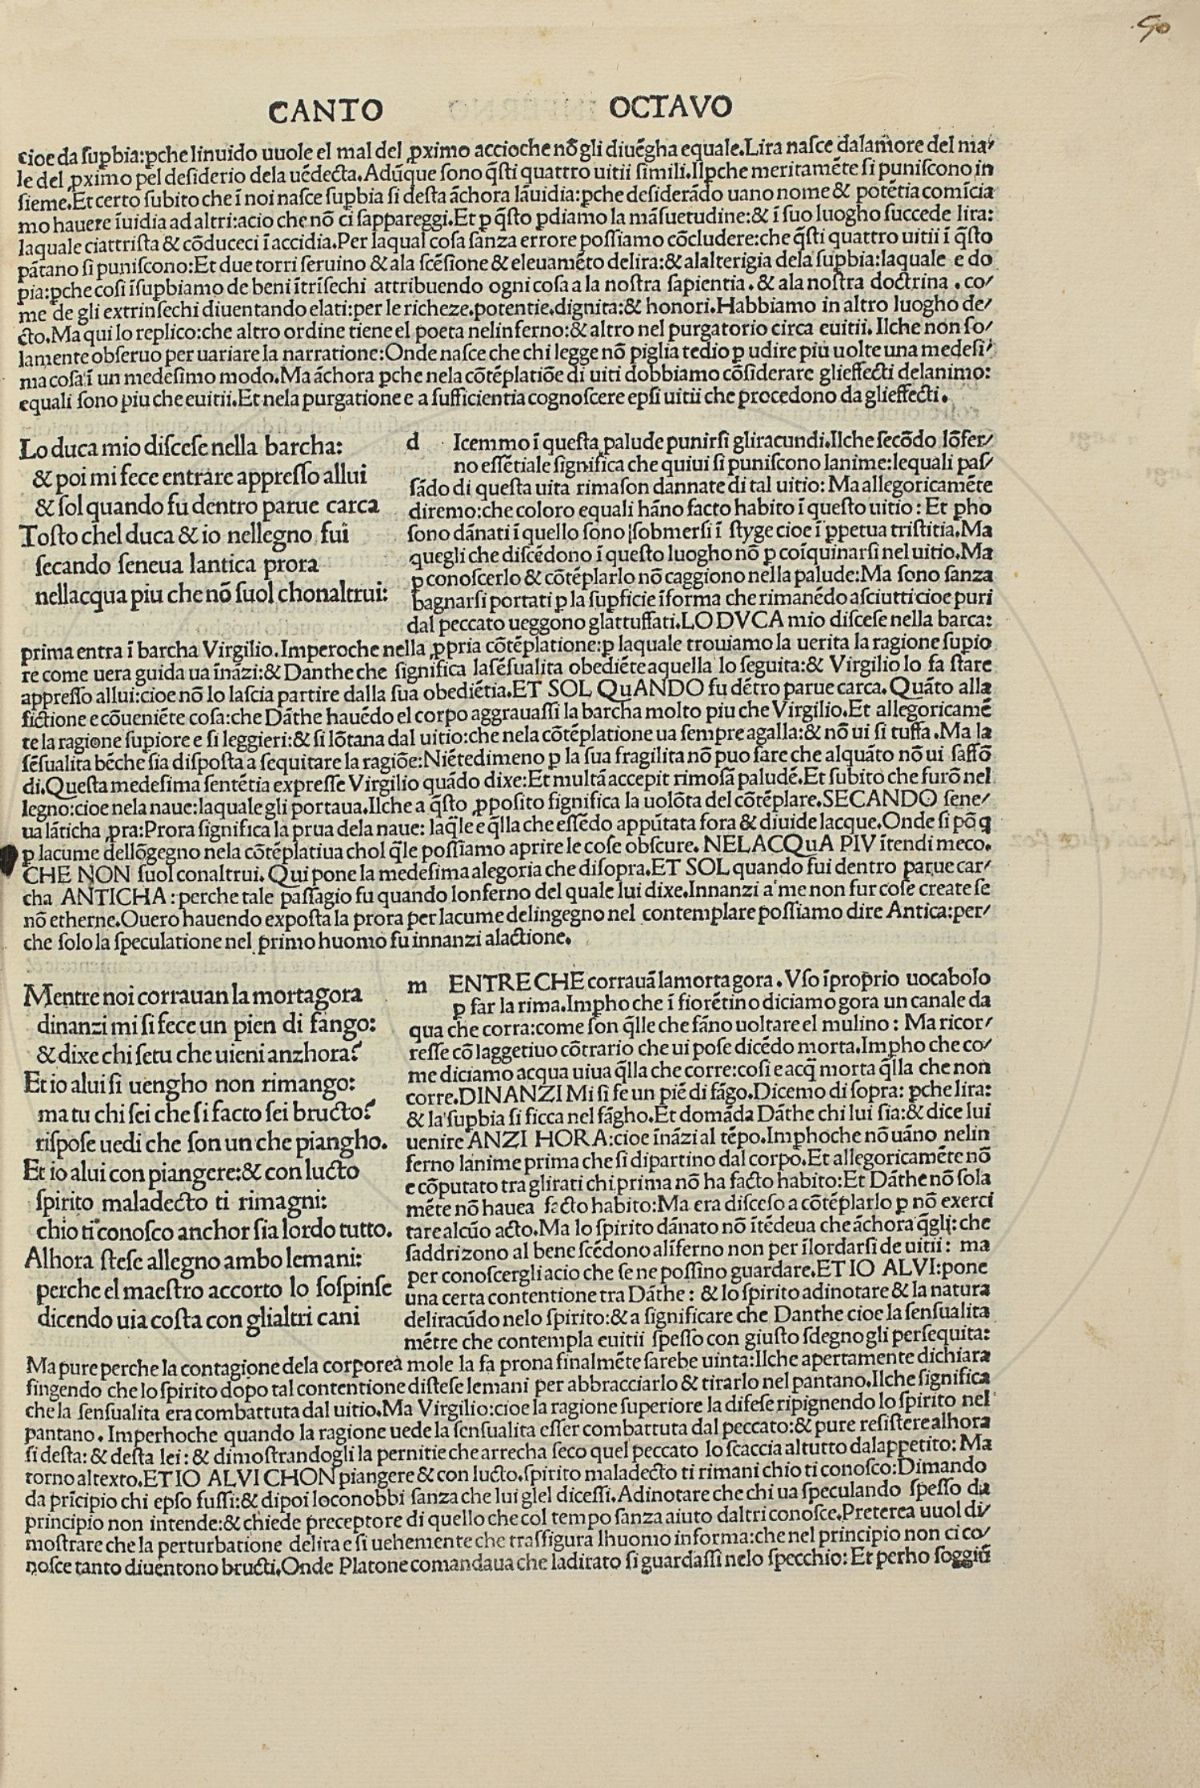 50
CANTO OCTAVO
cioe da suꝑbia:ꝑche linuido uuole el mal del ꝓximo accioche nō gli diuēgha equale.Lira nasce dalamore del ma⸗
le del ꝓximo ꝑel desiderio dela uēdecta.Adūque sono q̄sti quattro uitii simili.Ilꝑche meritamēte si puniscono in
sieme.Et certo subito che ī noi nasce suꝑbia si desta āchora lāuidia:ꝑche desiderādo uano nome & potētia comīcia
mo hauere īuidia ad altri:acio che nō ci sappareggi.Et ꝑ q̄sto ꝑdiamo la māsuetudine:& ī suo luogho succede lira:
laquale ciattrista & cōduceci ī accidia.Per laqual cosa sanza errore possiamo cōcludere:che q̄sti quattro uitii ī q̄sto
pātano si puniscono:Et due torri seruino & ala scēsione & eleuamēto delira:& alalterigia dela suꝑbia:laquale e do
pia:ꝑche cosi īsuꝑbiamo de beni ītrīsechi attribuendo ogni cosa a la nostra sapientia . & ala nostra doctrina . co⸗
me de gli extrinsechi diuentando elati:per le richeze.potentie.dignita:& honori.Habbiamo in altro luogho de⸗
cto.Ma qui lo replico:che altro ordine tiene el poeta nelinferno:& altro nel purgatorio circa euitii.Ilche non so⸗
lamente obseruo per uariare la narratione:Onde nasce che chi legge nō piglia tedio ꝑ udire piu uolte una medesi⸗
ma cosa ī un medesimo modo.Ma āchora ꝑche nela cōtēplatiōe di uiti dobbiamo cōsiderare glieffecti delanimo:
equali sono piu che euitii.Et nela purgatione e a sufficientia cognoscere epsi uitii che procedono da glieffecti.
Lo duca mio discese nella barcha:
& poi mi fece entrare appresso allui
& sol quando fu dentro parue carca
Tosto chel duca & io nellegno fui
secando seneua lantica prora
nellacqua piu che nō suol chonaltrui:
d Icemmo ī questa palude punirsi gliracundi.Ilche secōdo lōfer⸗
no essētiale significa che quiui si puniscono lanime:lequali pas⸗
sādo di questa uita rimason dannate di tal uitio:Ma allegoricamēte
diremo:che coloro equali hāno facto habito ī questo uitio:Et ꝑho
sono dānati ī quello sono sobmersi ī styge cioe ī ꝑpetua tristitia.Ma
quegli che discēdono ī questo luogho nō ꝑ coīquinarsi nel uitio.Ma
ꝑ conoscerlo & cōtēplarlo nō caggiono nella palude:Ma sono sanza
bagnarsi portati ꝑ la suꝑficie īforma che rimanēdo asciutti cioe puri
dal peccato ueggono glattuffati.LO DVCA mio discese nella barca:
prima entra ī barcha Virgilio.Imperoche nella ꝓpria cōtēplatione:ꝑ laquale trouiamo la uerita la ragione supio
re come uera guida ua īnāzi:& Danthe che significa lasēsualita obediēte aquella lo seguita:& Virgilio lo fa stare
appresso allui:cioe nō lo lascia partire dalla sua obediētia.ET SOL QuANDO fu dētro parue carca.Quāto alla
fictione e cōueniēte cosa:che Dāthe hauēdo el corpo aggrauassi la barcha molto piu che Virgilio.Et allegoricamē
te la ragione supiore e si leggieri:& si lōtana dal uitio:che nela cōtēplatione ua sempre agalla:& nō ui si tuffa.Ma la
sēsualita bēche sia disposta a sequitare la ragiōe:Niētedimeno ꝑ la sua fragilita nō puo fare che alquāto nō ui saffō
di.Questa medesima sentētia expresse Virgilio quādo dixe:Et multā accepit rimosā paludē.Et subito che furō nel
legno:cioe nela naue:laquale gli portaua.Ilche a q̄sto ꝓposito significa la uolōta del cōtēplare.SECANDO sene⸗
ua lāticha ꝓra:Prora significa la prua dela naue: laq̄le e q̄lla che essēdo appūtata fora & diuide lacque.Onde si pō q
ꝑ lacume dellōgegno nela cōtēplatiua chol q̄le possiamo aprire le cose obscure.NELACQuA PIV ītendi meco.
CHE NON suol conaltrui. Qui pone la medesima alegoria che disopra.ET SOL quando fui dentro parue car⸗
cha ANTICHA:perche tale passagio fu quando lonferno del quale lui dixe.Innanzi a me non fur cose create se
nō etherne.Ouero hauendo exposta la prora per lacume delingegno nel contemplare possiamo dire Antica:per⸗
che solo la speculatione nel primo huomo fu innanzi alactione.
Mentre noi corrauan la morta gora
dinanzi mi si fece un pien di fango:
& dixe chi setu che uieni anzhora?
Et io alui si uengho non rimango:
ma tu chi sei che si facto sei bructo?
rispose uedi che son un che piangho.
Et io alui con piangere:& con lucto
spirito maladecto ti rimagni:
chio ti conosco anchor sia lordo tutto.
Alhora stese allegno ambo lemani:
perche el maestro accorto lo sospinse
dicendo uia costa con glialtri cani
m ENTRE CHE corrauā lamorta gora . Vso īproprio uocabolo
ꝑ far la rima.Imꝑho che ī fiorētino diciamo gora un canale da
qua che corra:come son q̄lle che fāno uoltare el mulino : Ma ricor⸗
resse cō laggetiuo cōtrario che ui pose dicēdo morta.Imꝑho che co⸗
me diciamo acqua uiua q̄lla che corre:cosi e acq̄ morta q̄lla che non
corre.DINANZI Mi si fe un piē di fāgo.Dicemo di sopra: ꝑche lira:
& la suꝑbia si ficca nel fāgho.Et domāda Dāthe chi lui sia:& dice lui
uenire ANZI HORA:cioe īnāzi al tēpo.Imꝑhoche nō uāno nelin
ferno lanime prima che si dipartino dal corpo.Et allegoricamēte nō
e cōputato tra glirati chi prima nō ha facto habito:Et Dāthe nō sola
mēte nō hauea facto habito:Ma era disceso a cōtēplarlo ꝑ nō exerci
tare alcūo acto.Ma lo spirito dānato nō ītēdeua che āchora q̄gli: che
saddrizono al bene scēdono aliferno non per īlordarsi de uitii: ma
per conoscergli acio che se ne possino guardare.ET IO ALVI:pone
una certa contentione tra Dāthe: & lo spirito adinotare & la natura
deliracūdo nelo spirito:& a significare che Danthe cioe la sensualita
mētre che contempla euitii spesso con giusto sdegno gli persequita:
Ma pure perche la contagione dela corporea mole la fa prona finalmēte sarebe uinta:Ilche apertamente dichiara
fingendo che lo spirito dopo tal contentione distese lemani per abbracciarlo & tirarlo nel pantano.Ilche significa
che la sensualita era combattuta dal uitio.Ma Virgilio:cioe la ragione superiore la difese ripignendo lo spirito nel
pantano . Imperhoche quando la ragione uede la sensualita esser combattuta dal peccato:& pure resistere alhora
si desta: & desta lei: & dimostrandogli la pernitie che arrecha seco quel peccato lo scaccia altutto dalappetito: Ma
torno altexto.ET IO ALVI CHON piangere & con lucto.spirito maladecto ti rimani chio ti conosco:Dimando
da prīcipio chi epso fussi:& dipoi loconobbi sanza che lui glel dicessi.Adinotare che chi ua speculando spesso da
principio non intende:& chiede preceptore di quello che col tempo sanza aiuto daltri conosce.Preterea uuol di⸗
mostrare che la perturbatione delira e si uehemente che trassigura lhuomo informa:che nel principio non ci co⸗
nosce tanto diuentono bructi.Onde Platone comandaua che ladirato si guardassi nelo specchio: Et perho soggiū